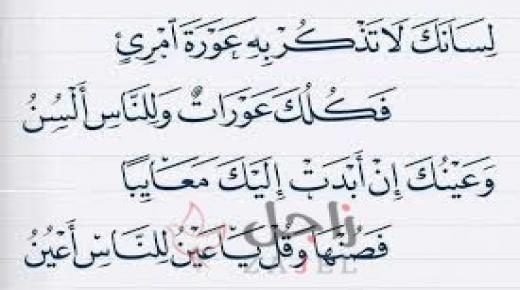 لِسَانَكَ لَا تَذْكُرْ بِهِ عَوْرَةَ ٱمْرِئٍ
فَكُلُّكَ عَوْرَاتٌ وَلِلنَّاسِ أَلْسُنُ
وَعَيْنُكَ إِنْ أَبْدَتْ إِلَيْكَ مَعَايِبًا
زاجل
فَصُنْهَا وَقُلْ يَا عَيْنُ لِلنَّاسِ أَعْيُنُ